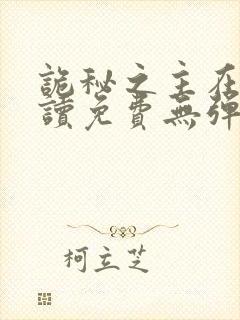 詭秘之主在
讀免費無彈
柯立芝